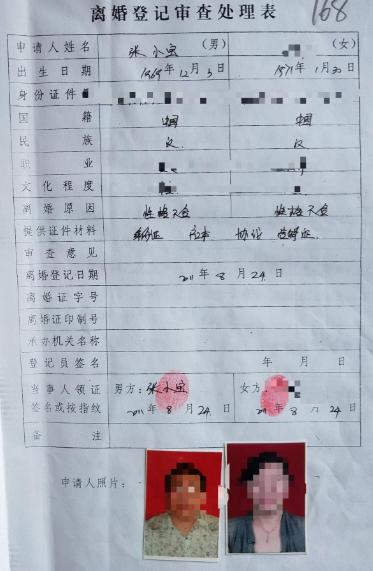 离婚登记审查处理表 168
申请人姓名 张小宝 (男) (女)
出生日期 1969年12月3日 1971年1月30日
身份证件
国籍 中国 中国
民族 汉 汉
职业
文化程度
离婚原因 性格不合 性格不合
提供证件材料 身份证 户口本 协议 结婚证
审查意见
离婚登记日期 2011年8月24日
离婚证字号
离婚证印制号
承办机关名称
登记员签名 年 月 日
当事人领证 男方：张小宝 女方
签名或按指纹 2011年8月24日 2011年8月24日
备注
申请人照片：